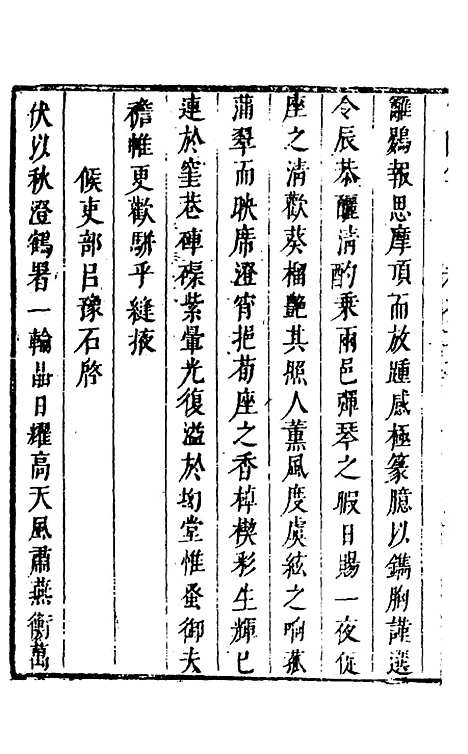 雛鷃報思摩頂而放踵感極篆臆以鐫胸謹選
令辰恭醴清酌乘兩邑彈琴之暇日賜一夜促
座之清歡葵榴艷其照人薰風度虞絃之响菰
蒲翠而映席澄宵挹荀座之香棹楔彩生輝已
連於窐巷磚磔紫暈光復溢於坳堂惟蚤御夫
襜帷更歡駢乎縫掖
候吏部吕豫石啓
伏以秋澄鶴署一輪晶日耀高天風肅燕衡萬